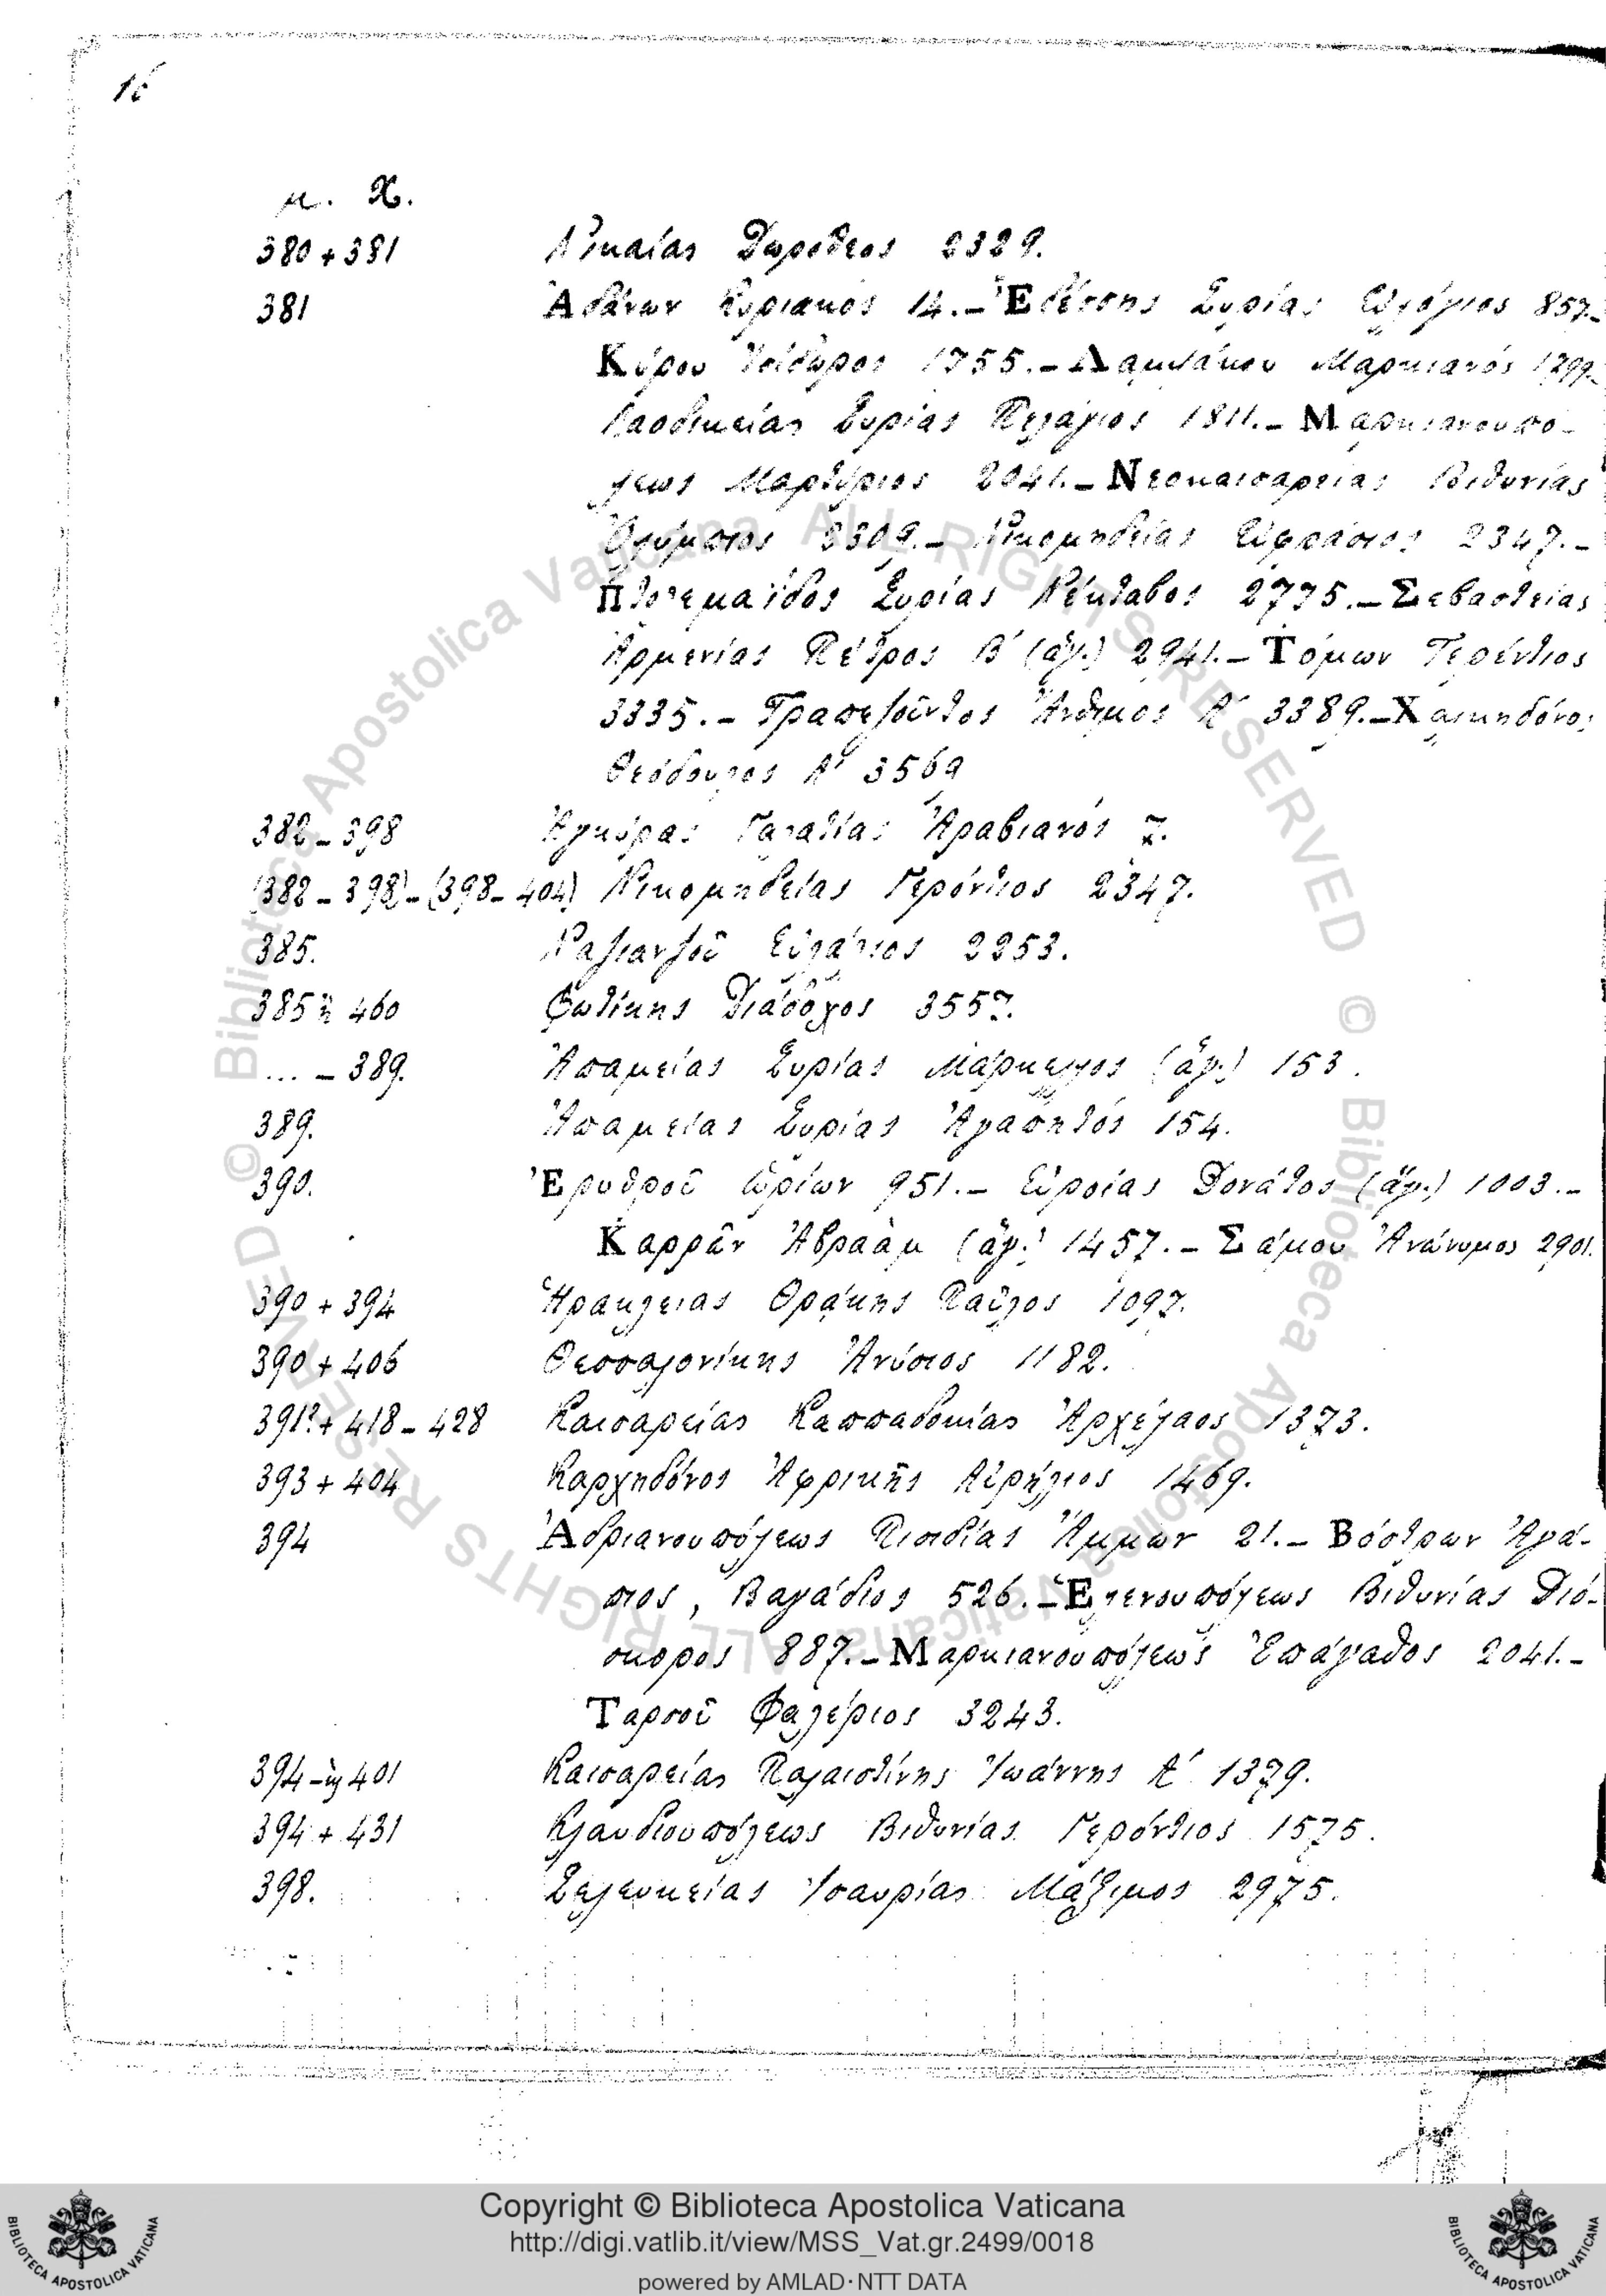 16
μ. Χ.
380 + 381 Νικαίας Δωρόθεος 2329.
381 Ἀδάνων Κυριακός 14. – Ἐδέσσης Συρίας Εὐλόγιος 857. –
Κύρου Ἰσίδωρος 1755. – Λαμψάκου Μαρκιανός 1799. –
Λαοδικείας Συρίας Πελάγιος 1811. – Μαρκιανουπό-
λεως Μαρτύριος 2041. – Νεοκαισαρείας Βιθυνίας
Ὀλύμπιος 2309. – Νικομηδείας Εὐφράσιος 2347. –
Πτολεμαΐδος Συρίας Νέκταβος 2775. – Σεβαστείας
Ἀρμενίας Πέτρος Β΄ (ἅγ.) 2941. – Τόμων Τερέντιος
3335. – Τραπεζοῦντος Ἄνθιμος Α΄ 3389. – Χαλκηδόνος
Θεόδουλος Α΄ 3569
382 – 398 Ἀγκύρας Γαλατίας Ἀραβιανός 7.
(382 – 398) – (398 – 404) Νικομηδείας Γερόντιος 2347.
385. Ναζιανζοῦ Εὐλάλιος 2253.
385 ἢ 460 Φωτικῆς Διάδοχος 3557.
... – 389. Ἀπαμείας Συρίας Μάρκελλος (ἅγ.) 153.
389. Ἀπαμείας Συρίας Ἀγαπητός 154.
390. Ἐρυθροῦ Ὠρίων 951. – Εὐροίας Δονάτος (ἅγ.) 1003. –
Καρρῶν Ἀβραὰμ (ἅγ.) 1457. – Σάμου Ἀνώνυμος 2901.
390 + 394 Ἡρακλείας Θρᾴκης Παῦλος 1097.
390 + 406 Θεσσαλονίκης Ἀνύσιος 1182.
391? + 418 – 428 Καισαρείας Καππαδοκίας Ἀρχέλαος 1373.
393 + 404 Καρχηδόνος Ἀφρικῆς Αὐρήλιος 1469.
394 Ἀδριανουπόλεως Πισιδίας Ἄμμων 21. – Βόστρων Ἀγά-
πιος, Βαγάδιος 526. – Ἑλενουπόλεως Βιθυνίας Διό-
σκορος 887. – Μαρκιανουπόλεως Ἐπάγαθος 2041. –
Ταρσοῦ Φαλέριος 3243.
394 – 401 Καισαρείας Παλαιστίνης Ἰωάννης Α΄ 1379.
394 + 431 Κλαυδιουπόλεως Βιθυνίας Γερόντιος 1575.
398. Σελευκείας Ἰσαυρίας Μάξιμος 2975.
© Biblioteca Apostolica Vaticana ALL RIGHTS RESERVED © Biblioteca Apostolica Vaticana ALL RIGHTS RESERVED
Copyright © Biblioteca Apostolica Vaticana
http://digi.vatlib.it/view/MSS_Vat.gr.2499/0018
powered by AMLAD·NTT DATA
BIBLIOTECA APOSTOLICA VATICANA
BIBLIOTECA APOSTOLICA VATICANA